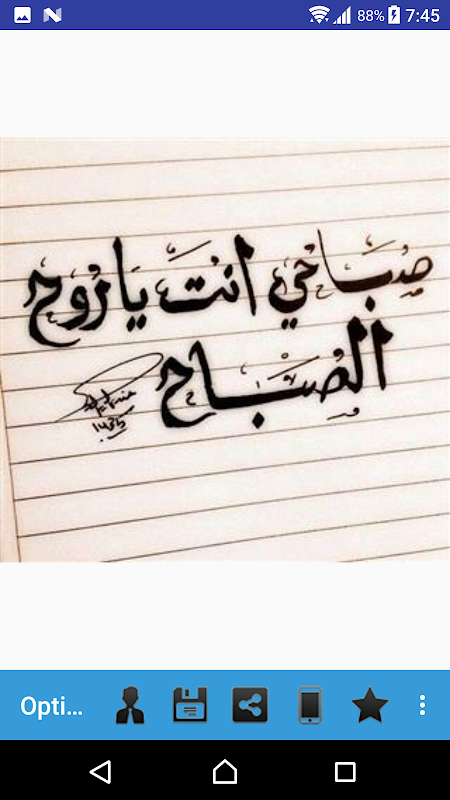 88% 7:45
صباحي انت يا روح
الصباح
Opti...